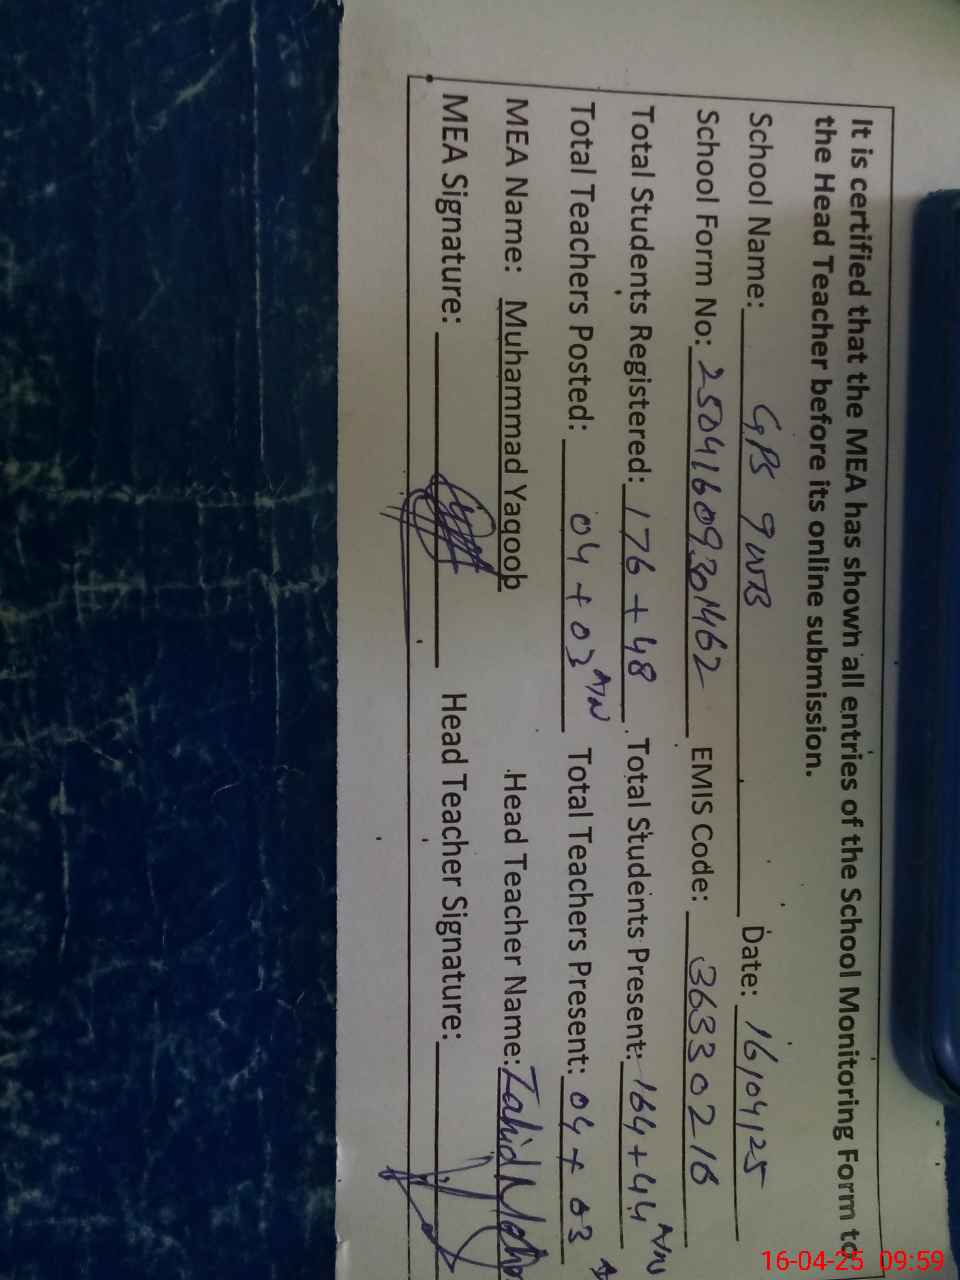 It is certified that the MEA has shown all entries of the School Monitoring Form to
the Head Teacher before its online submission.
School Name: GPS 9WB Date: 16/04/25
School Form No: 25041609301462 EMIS Code: 36330216
Total Students Registered: 176 + 48 Total Students Present: 164 + 44
Total Teachers Posted: 04 + 03 Total Teachers Present: 04 + 03
MEA Name: Muhammad Yaqoob Head Teacher Name: Zahid
MEA Signature: Head Teacher Signature:
16-04-25 09:59